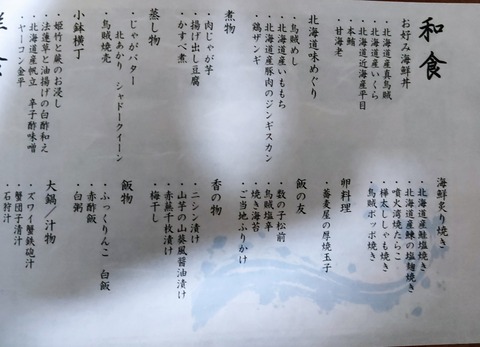 和食
お好み海鮮丼
・北海道産真烏賊
・北海道産いくら
・北海道近海産平目
・本鮪
・甘海老
北海道味めぐり
・烏賊めし
・北海道産いももち
・北海道産豚肉のジンギスカン
・鶏ザンギ
煮物
・肉じゃが芋
・揚げ出し豆腐
・かすべ煮
蒸し物
・じゃがバター
北あかり シャドークイーン
・烏賊焼売
小鉢横丁
・姫竹と蕨のお浸し
・法蓮草と油揚げの白酢和え
・北海道産帆立 辛子酢味噌
・ヤーコン金平
海鮮炙り焼き
・北海道産鮭塩焼き
・北海道産鰊の塩麹焼き
・噴火湾焼たらこ
・樺太ししゃも焼き
・烏賊ポッポ焼き
卵料理
・蕎麦屋の厚焼玉子
飯の友
・数の子松前
・烏賊塩辛
・焼き海苔
・ご当地ふりかけ
香の物
・ニシン漬け
・山芋の山葵風醤油漬け
・赤蕪千枚漬け
・梅干し
飯物
・ふっくりんこ 白飯
・赤酢飯
・白粥
大鍋/汁物
・ズワイ蟹鉄砲汁
・蟹団子清汁
・石狩汁